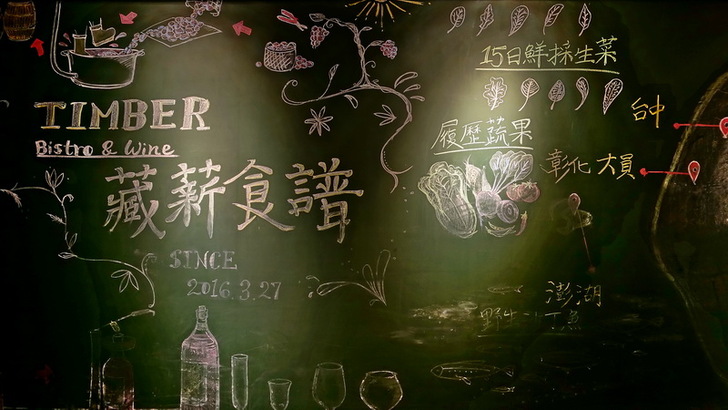 TIMBER
Bistro & Wine
藏薪食譜
SINCE
2016.3.27
15日鮮採生菜
台中
履歷蔬果
彰化大員
澎湖
野生小丁魚